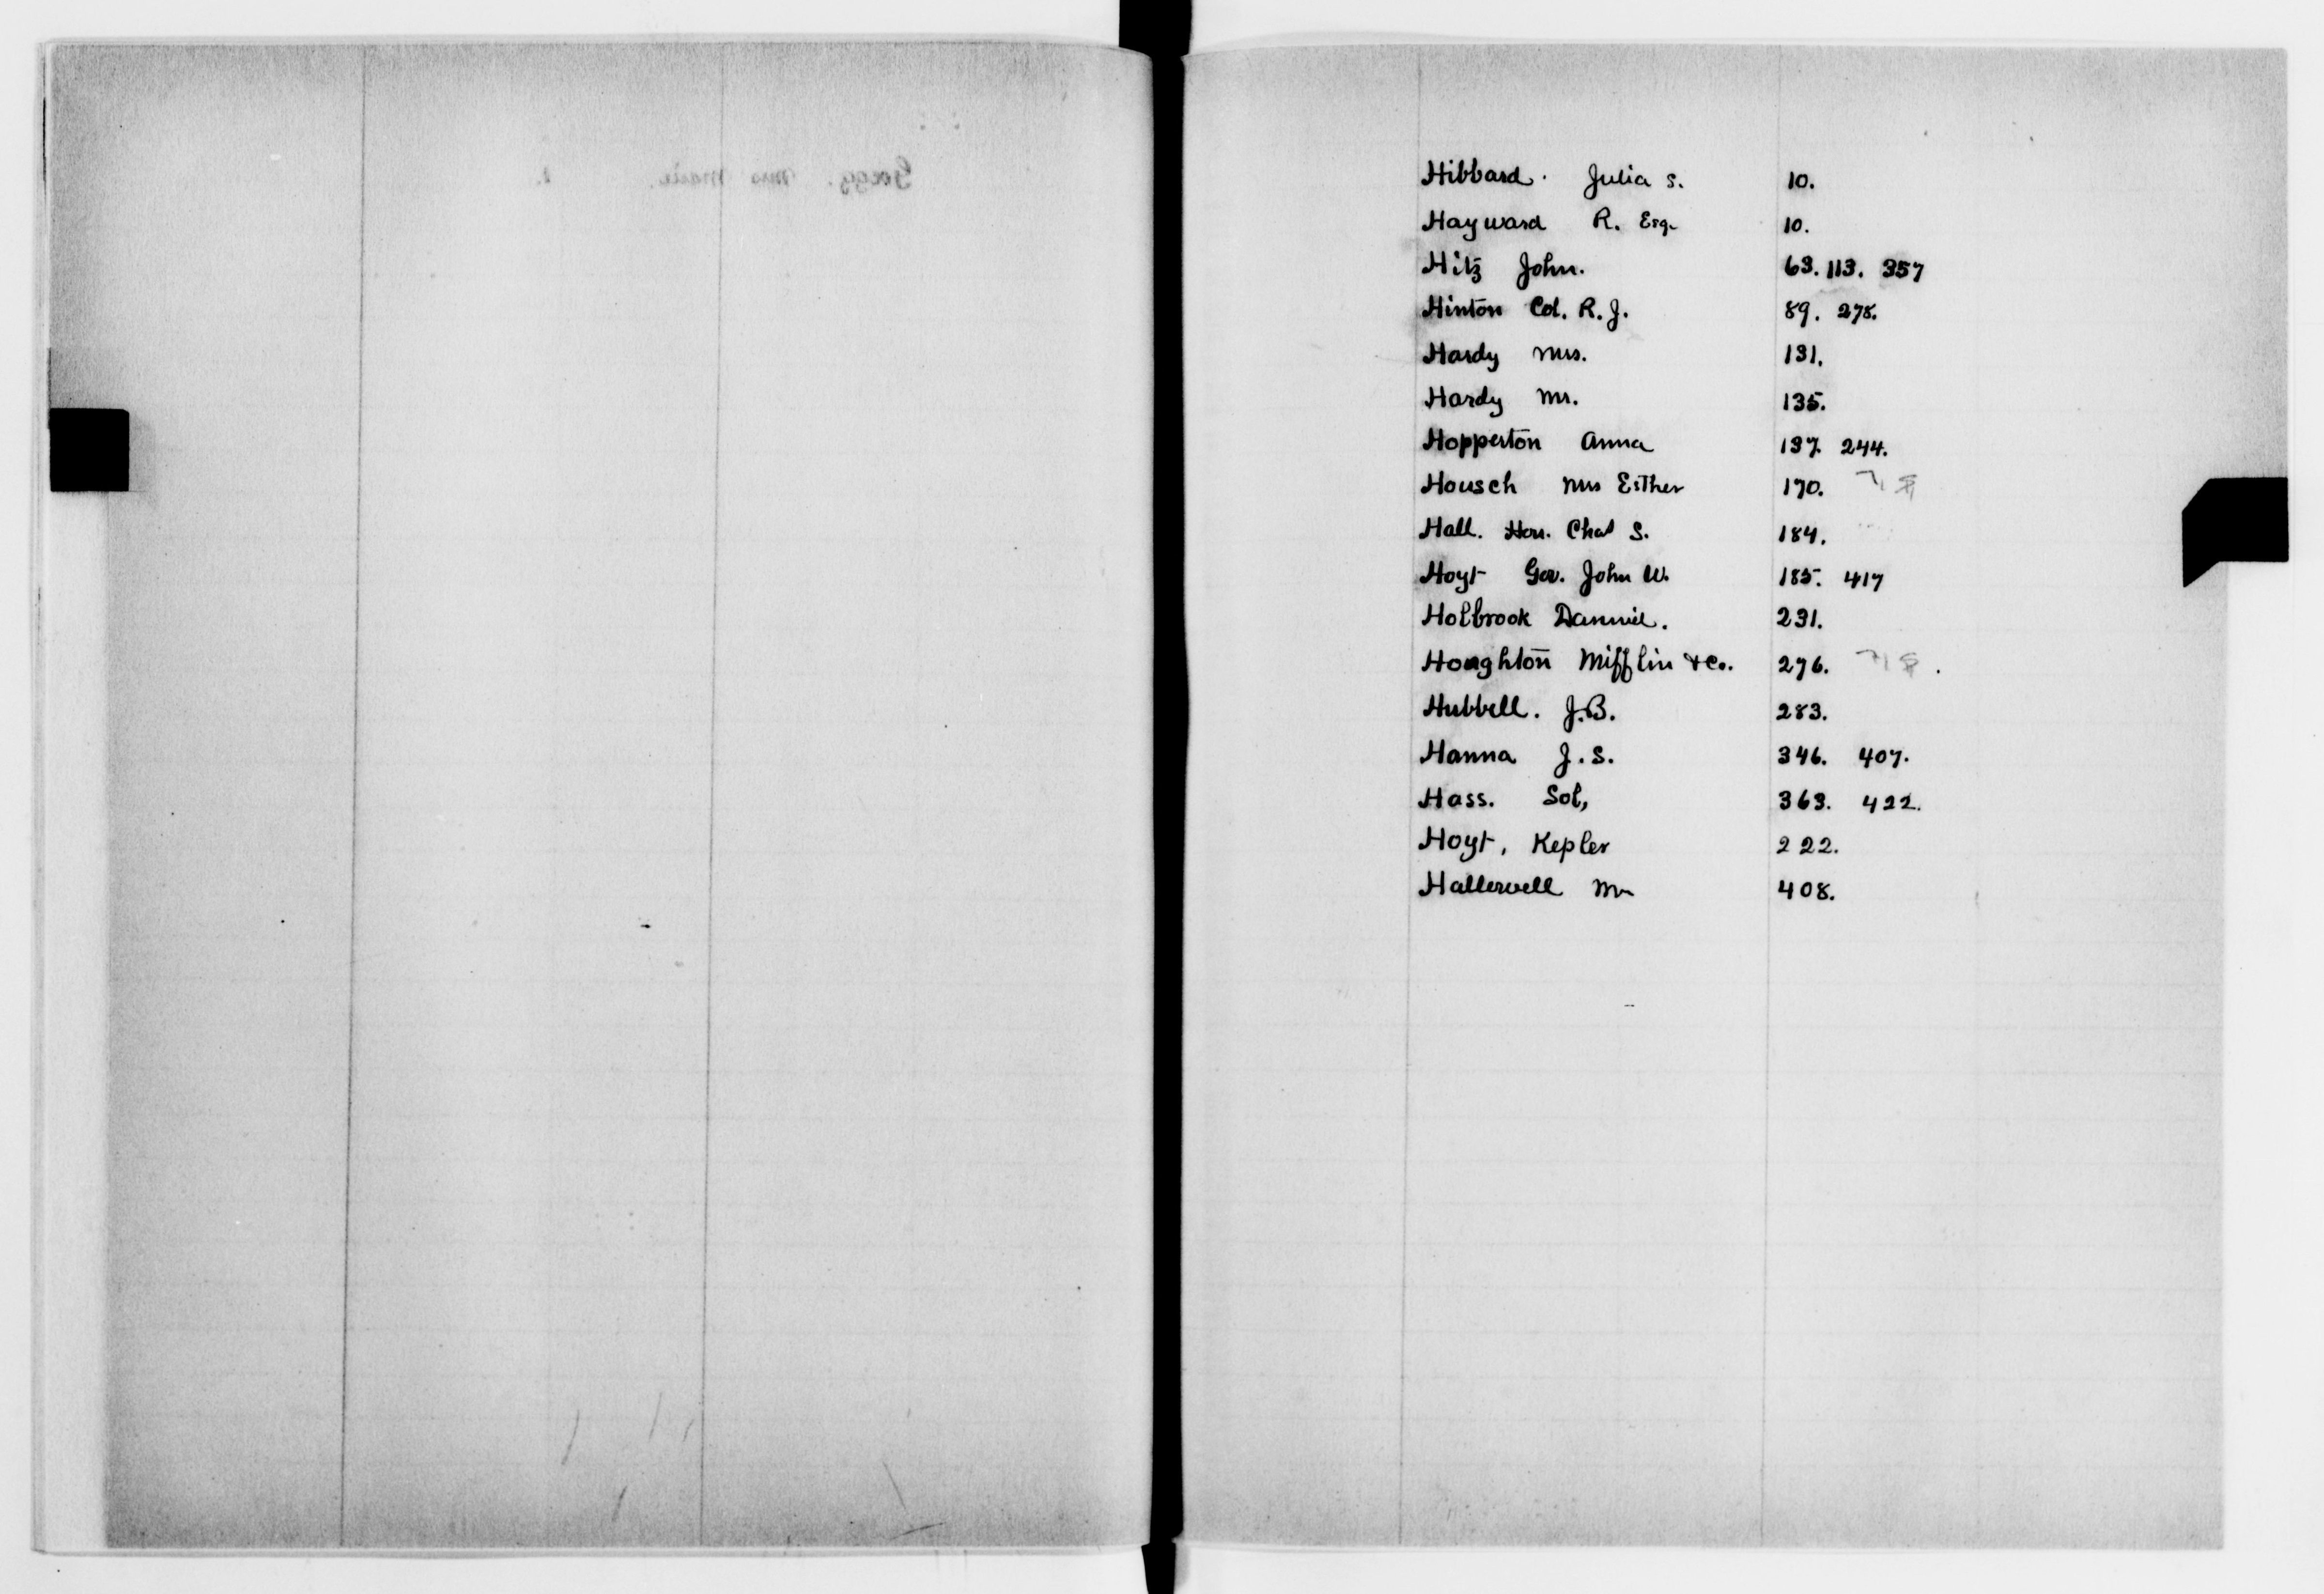 Hibbard. Julia S. 10.
Hayward R. Esq. 10.
Hitz John. 63. 113. 357
Hinton Col. R. J. 89. 278.
Hardy Mrs. 131.
Hardy Mr. 135.
Hopperton Anna 137. 244.
Housch Mrs Esther 170.
Hall. Hon. Chas S. 184.
Hoyt Gov. John W. 185. 417
Holbrook Danniel. 231.
Houghton Mifflin & Co. 276.
Hubbell. J.B. 283.
Hanna J. S. 346. 407.
Hass. Sol, 363. 422.
Hoyt, Kepler 222.
Hallewell Mr 408.